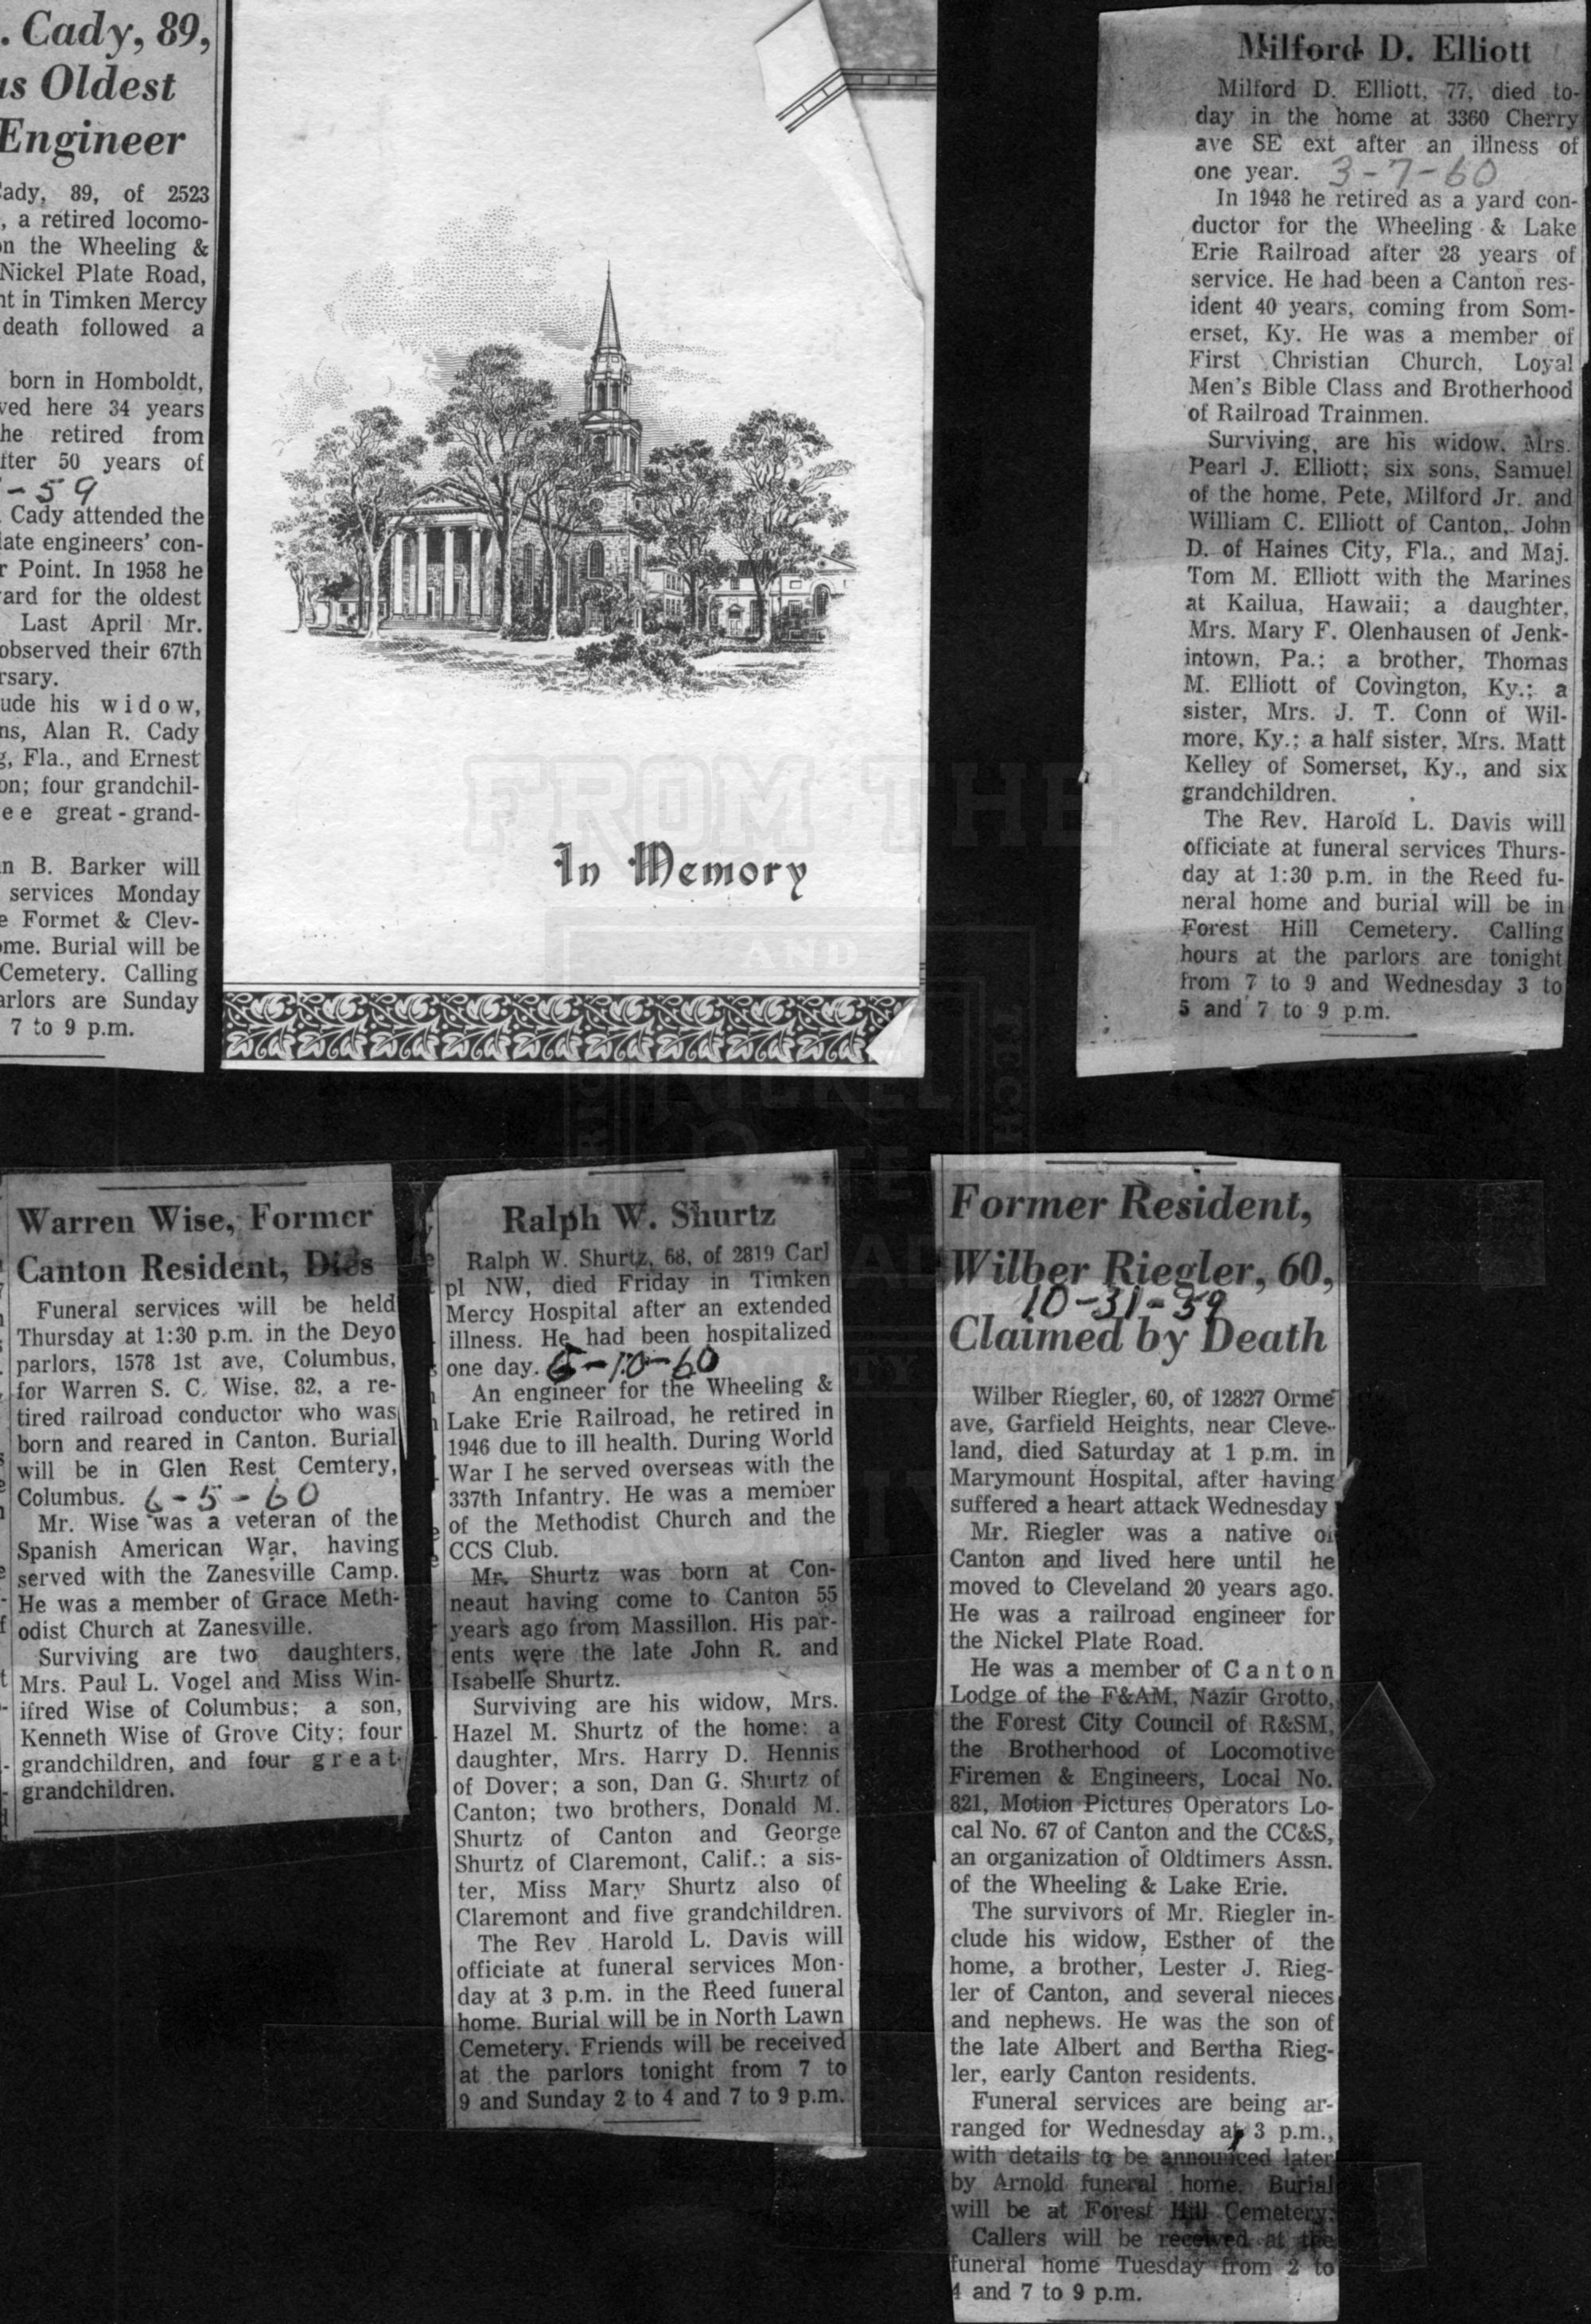 . Cady, 89,
as Oldest
Engineer
Cady, 89, of 2523
, a retired locomo-
on the Wheeling &
Nickel Plate Road,
nt in Timken Mercy
death followed a
born in Homboldt,
ved here 34 years
he retired from
fter 50 years of
-59
. Cady attended the
late engineers' con-
r Point. In 1958 he
ard for the oldest
Last April Mr.
observed their 67th
rsary.
ude his widow,
ns, Alan R. Cady
g, Fla., and Ernest
on; four grandchil-
ee great-grand-
n B. Barker will
services Monday
e Formet & Clev-
ome. Burial will be
Cemetery. Calling
arlors are Sunday
7 to 9 p.m.
In Memory
Milford D. Elliott
Milford D. Elliott, 77, died to-
day in the home at 3360 Cherry
ave SE ext after an illness of
one year. 3-7-60
In 1948 he retired as a yard con-
ductor for the Wheeling & Lake
Erie Railroad after 28 years of
service. He had been a Canton res-
ident 40 years, coming from Som-
erset, Ky. He was a member of
First Christian Church, Loyal
Men's Bible Class and Brotherhood
of Railroad Trainmen.
Surviving, are his widow, Mrs.
Pearl J. Elliott; six sons, Samuel
of the home, Pete, Milford Jr. and
William C. Elliott of Canton, John
D. of Haines City, Fla., and Maj.
Tom M. Elliott with the Marines
at Kailua, Hawaii; a daughter,
Mrs. Mary F. Olenhausen of Jenk-
intown, Pa.; a brother, Thomas
M. Elliott of Covington, Ky.; a
sister, Mrs. J. T. Conn of Wil-
more, Ky.; a half sister, Mrs. Matt
Kelley of Somerset, Ky., and six
grandchildren.
The Rev. Harold L. Davis will
officiate at funeral services Thurs-
day at 1:30 p.m. in the Reed fu-
neral home and burial will be in
Forest Hill Cemetery. Calling
hours at the parlors are tonight
from 7 to 9 and Wednesday 3 to
5 and 7 to 9 p.m.
FROM THE
AND
NICKEL
Warren Wise, Former
Canton Resident, Dies
Funeral services will be held
Thursday at 1:30 p.m. in the Deyo
parlors, 1578 1st ave, Columbus,
for Warren S. C. Wise, 82, a re-
tired railroad conductor who was
born and reared in Canton. Burial
will be in Glen Rest Cemtery,
Columbus. 6-5-60
Mr. Wise was a veteran of the
Spanish American War, having
served with the Zanesville Camp.
He was a member of Grace Meth-
odist Church at Zanesville.
Surviving are two daughters,
Mrs. Paul L. Vogel and Miss Win-
ifred Wise of Columbus; a son,
Kenneth Wise of Grove City; four
grandchildren, and four great-
grandchildren.
Ralph W. Shurtz
Ralph W. Shurtz, 68, of 2819 Carl
pl NW, died Friday in Timken
Mercy Hospital after an extended
illness. He had been hospitalized
one day. 6-10-60
An engineer for the Wheeling &
Lake Erie Railroad, he retired in
1946 due to ill health. During World
War I he served overseas with the
337th Infantry. He was a member
of the Methodist Church and the
CCS Club.
Mr. Shurtz was born at Con-
neaut having come to Canton 55
years ago from Massillon. His par-
ents were the late John R. and
Isabelle Shurtz.
Surviving are his widow, Mrs.
Hazel M. Shurtz of the home; a
daughter, Mrs. Harry D. Hennis
of Dover; a son, Dan G. Shurtz of
Canton; two brothers, Donald M.
Shurtz of Canton and George
Shurtz of Claremont, Calif.; a sis-
ter, Miss Mary Shurtz also of
Claremont and five grandchildren.
The Rev. Harold L. Davis will
officiate at funeral services Mon-
day at 3 p.m. in the Reed funeral
home. Burial will be in North Lawn
Cemetery. Friends will be received
at the parlors tonight from 7 to
9 and Sunday 2 to 4 and 7 to 9 p.m.
Former Resident,
Wilber Riegler, 60,
10-31-59
Claimed by Death
Wilber Riegler, 60, of 12827 Orme
ave, Garfield Heights, near Cleve-
land, died Saturday at 1 p.m. in
Marymount Hospital, after having
suffered a heart attack Wednesday
Mr. Riegler was a native of
Canton and lived here until he
moved to Cleveland 20 years ago.
He was a railroad engineer for
the Nickel Plate Road.
He was a member of Canton
Lodge of the F&AM, Nazir Grotto,
the Forest City Council of R&SM,
the Brotherhood of Locomotive
Firemen & Engineers, Local No.
821, Motion Pictures Operators Lo-
cal No. 67 of Canton and the CC&S,
an organization of Oldtimers Assn.
of the Wheeling & Lake Erie.
The survivors of Mr. Riegler in-
clude his widow, Esther of the
home, a brother, Lester J. Rieg-
ler of Canton, and several nieces
and nephews. He was the son of
the late Albert and Bertha Rieg-
ler, early Canton residents.
Funeral services are being ar-
ranged for Wednesday at 3 p.m.,
with details to be announced later
by Arnold funeral home. Burial
will be at Forest Hill Cemetery.
Callers will be received at the
funeral home Tuesday from 2 to
4 and 7 to 9 p.m.